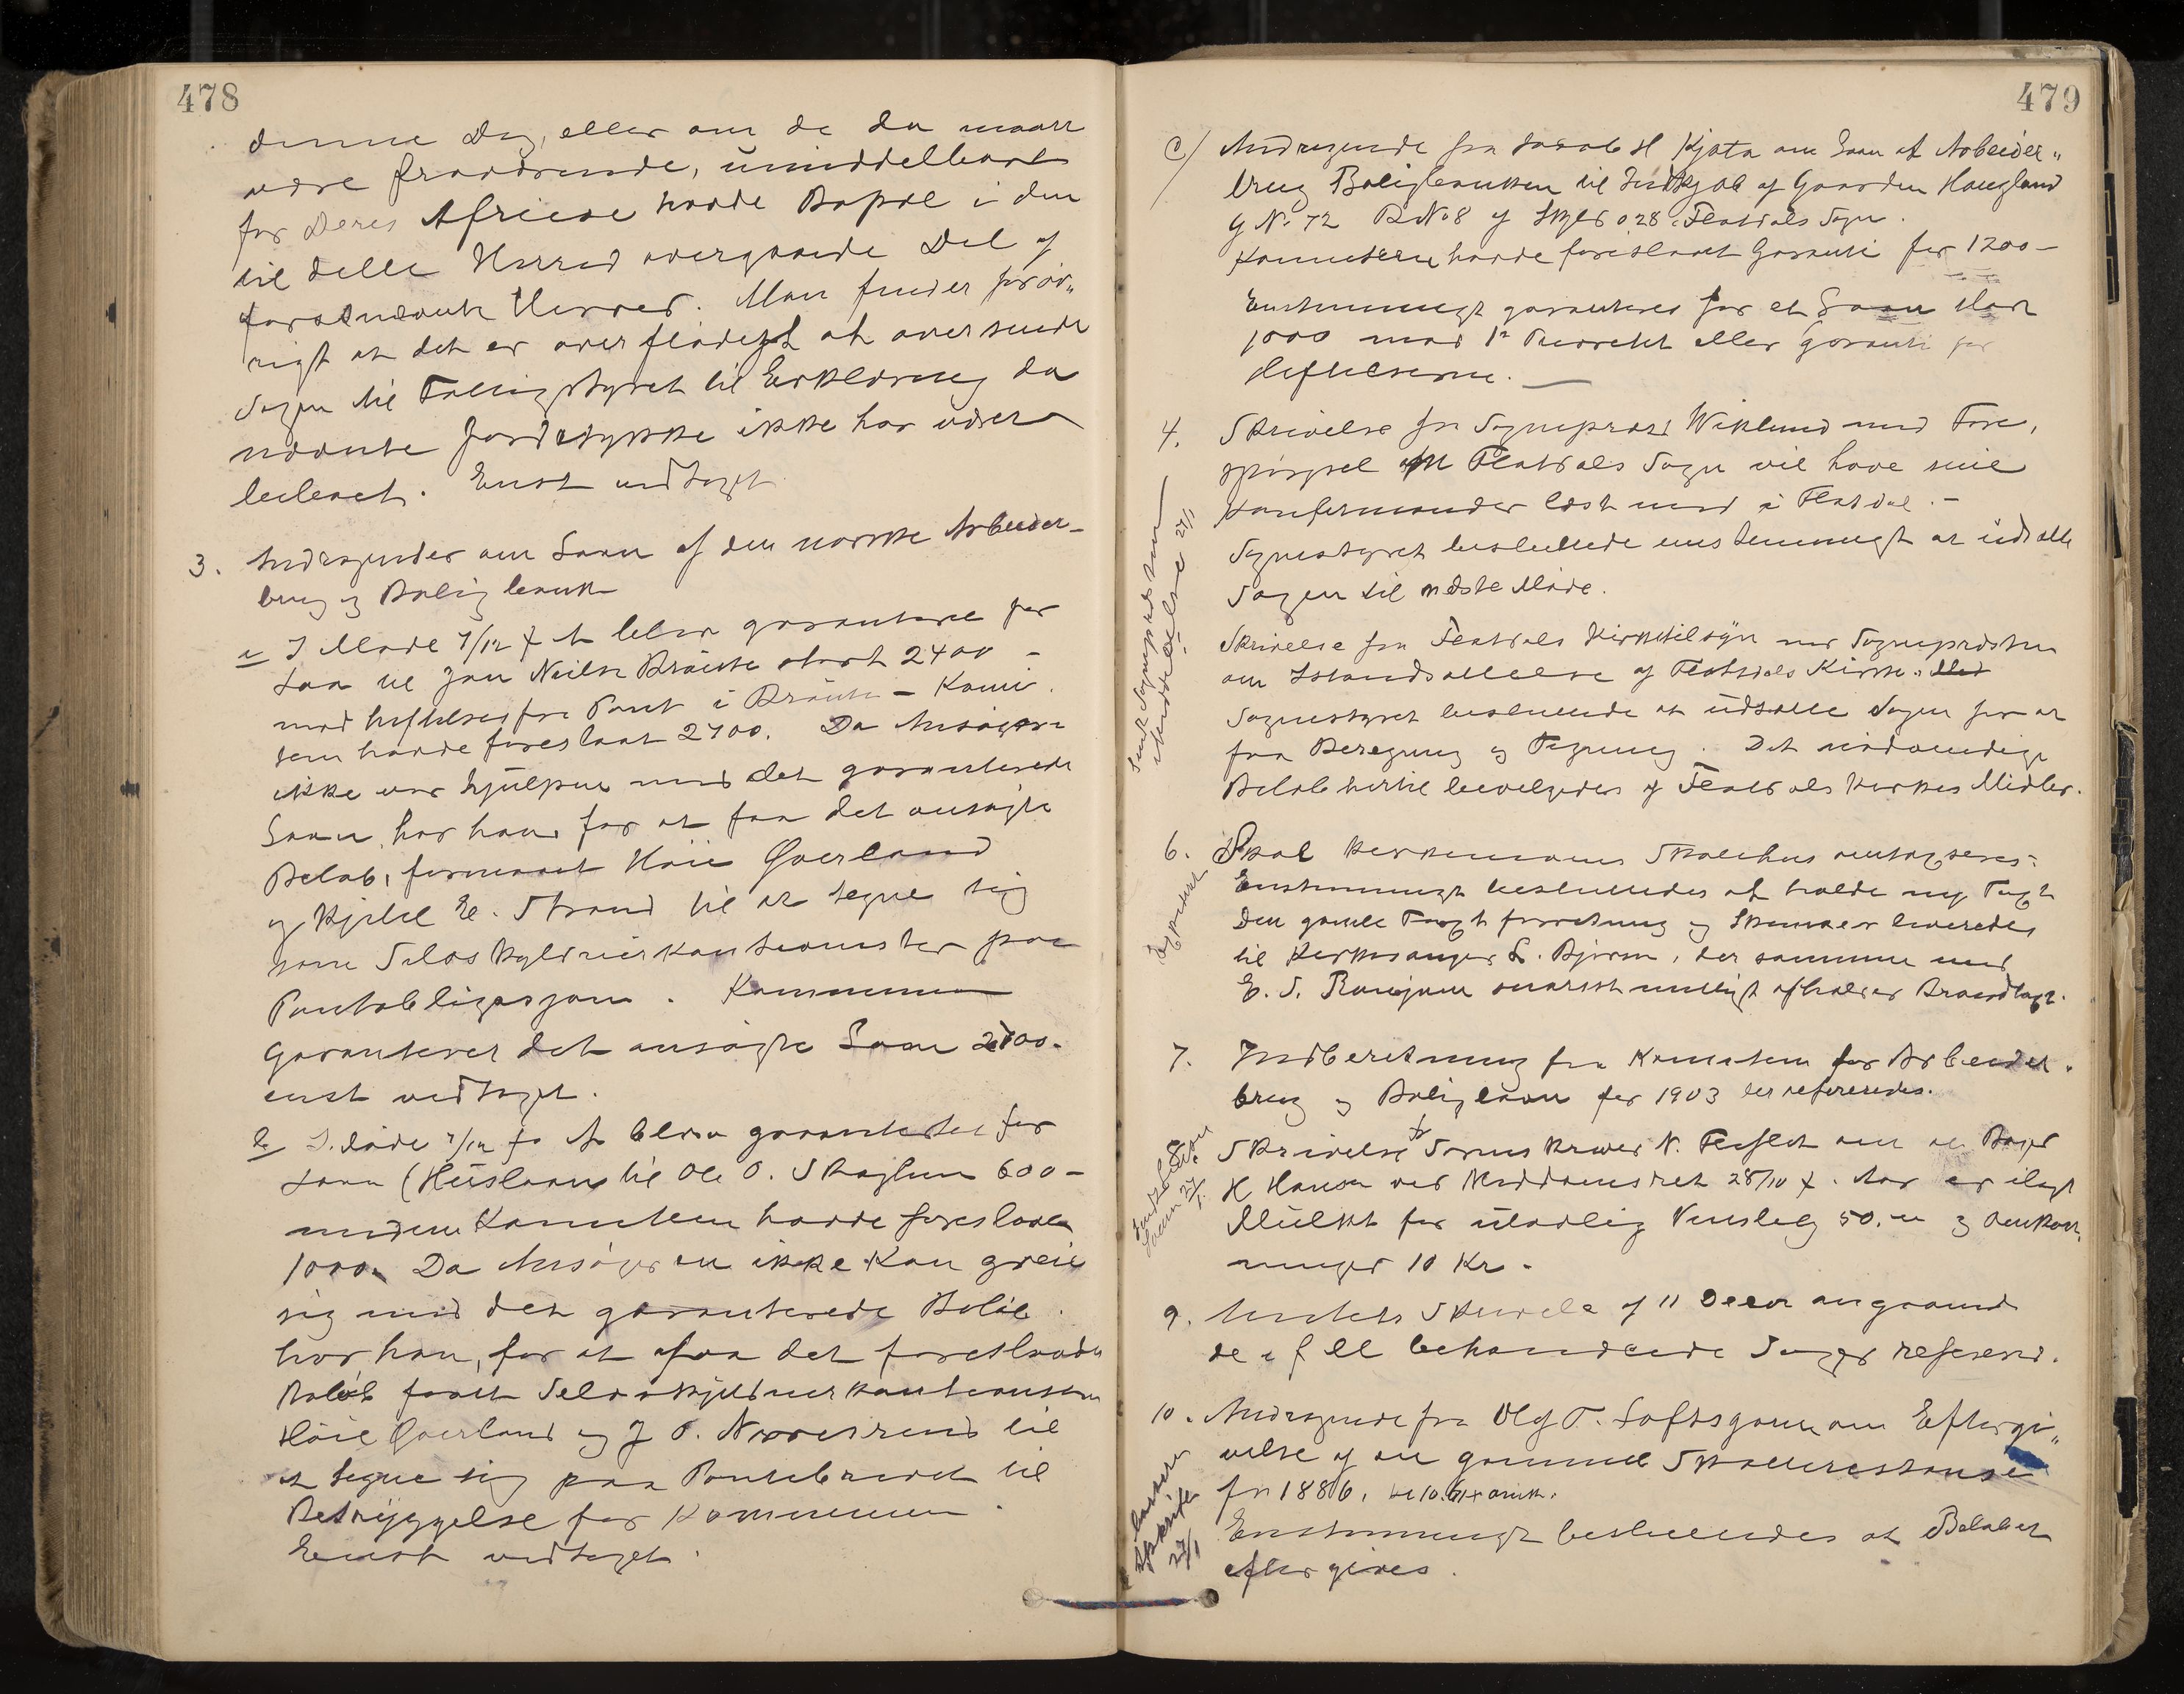 478
denne Dag, eller om de da maatte
være fraværende, umiddelbart
før Deres Afreise havde Bopæl i den
til dette Herred overgaaede Del af
førstnævnte Herred. Man finder forøv„
rigt at det er overflødigt at oversende
Sagen til Fattigstyret til Erklæring da
nævnte Jordstykke ikke har været
beboet. Enst vedtaget
3. Andragender om Laan af den norske Arbeider-
brug og Boligbank
a I Møde 7/12 f A blev garanteret for
Laan til Jon Neilsen Braute stort 2400 -
mod heftelsesfri Pant i Braute - Komi.
teen havde foreslaat 2700. Da Ansøgeren
ikke var hjulpen med det garanterede
Laan, har han for at faa det ansøgte
Beløb, formaaet Høie Qverland
og Kjetil E. Strand til at tegne sig
som Selvskyldnerkautionister paa
Pantobligasjonen. Kommunen
Garanterer det ansøgte Laan 2700.
enst vedtaget.
b I Møde 7/12 f A blev garanteret for
Laan (Huslaan) til Ole O. Skoglun 600 -
medens Komiteen havde foreslaaet
1000. Da Ansøgeren ikke kan greie
sig med det garanterede Beløb
har han, for at faa det foreslaaede
Beløb faaet Selvskyldnerkautionisterne
Høie Qverland og J O. til
at tegne sig paa Pantebrevet til
Betryggelse for Kommunen.
Enst vedtaget.
479
C/ Andragende fra Jacob H Kjøta om Laan af Arbeider„
brug Boligbanken til Indkjøb af Gaarden Haugland
G No 72 B No 8 af Skyld 0 28 i Flatdals Sogn.
Komiteen havde foreslaaet Garanti for 1200 -
Enstemmigt garanteres for et Laan stort
1000 mod 1ste Prioritet eller Garanti for
Heftelserne.
4. Skrivelse fra Sogneprest Wiklund med Fore„
spørgsel om Flatdals Sogn vil have sine
Konfirmander læst med i Flatdal. -
Sognestyret besluttede enstemmigt at udsætte
Sagen til næste Møde.
Sendt Sognepresten
Meddelelse 27/1
Skrivelse fra Flatdals Kirketilsyn ved Sognepresten
om Istandsættelse af Flatdals Kirke.
Sognestyret besluttede at udsætte Sagen for at
faa Beregning og Tegning. Det nødvendige
Beløb hertil bevilgedes af Flatdals Kirkes Midler.
6. Skal Kirkemoens Skolehus omtaxeres:
Enstemmigt besluttedes at holde ny Taxt
Den gamle Taxt forretning og Skemaer leveredes
til Kirkesanger L. Bjørsen, der sammen med
E. S. snarest muligt afholder Brandtaxt.
Expederet
7. Indberetning fra Komiteen for Arbeider„
brug og Boliglaan for 1903 der refereredes.
8. Skrivelse fr Sorenskriver N. Flesjet om at Roger
H Hansen ved Meddomsret 28/10 f. Aar er ilagt
Mulkt for ulovlig Vinsalg 50. - og Omkost„
ninger 10 Kr.
27/1
9. Amtets Skrivelse af 11 Decbr angaaende
de i f M behandlede Sager refereret.
10. Andragende fra Olaf T. Loftsgarden om Eftergi„
velse af en gammel Skatterestanse
fra 1886,
Enstemmigt besluttedes at Beløbet
eftergives.
Afskrifter
27/1